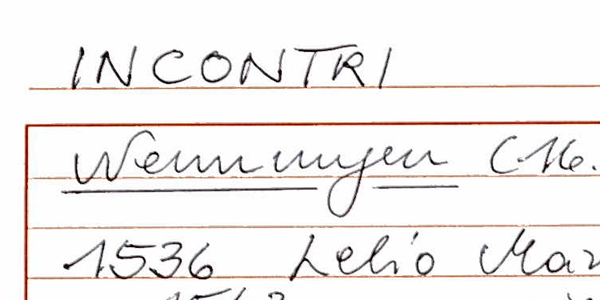 INCONTRI
Wemmingen C.16.
1536 Lelio Mar